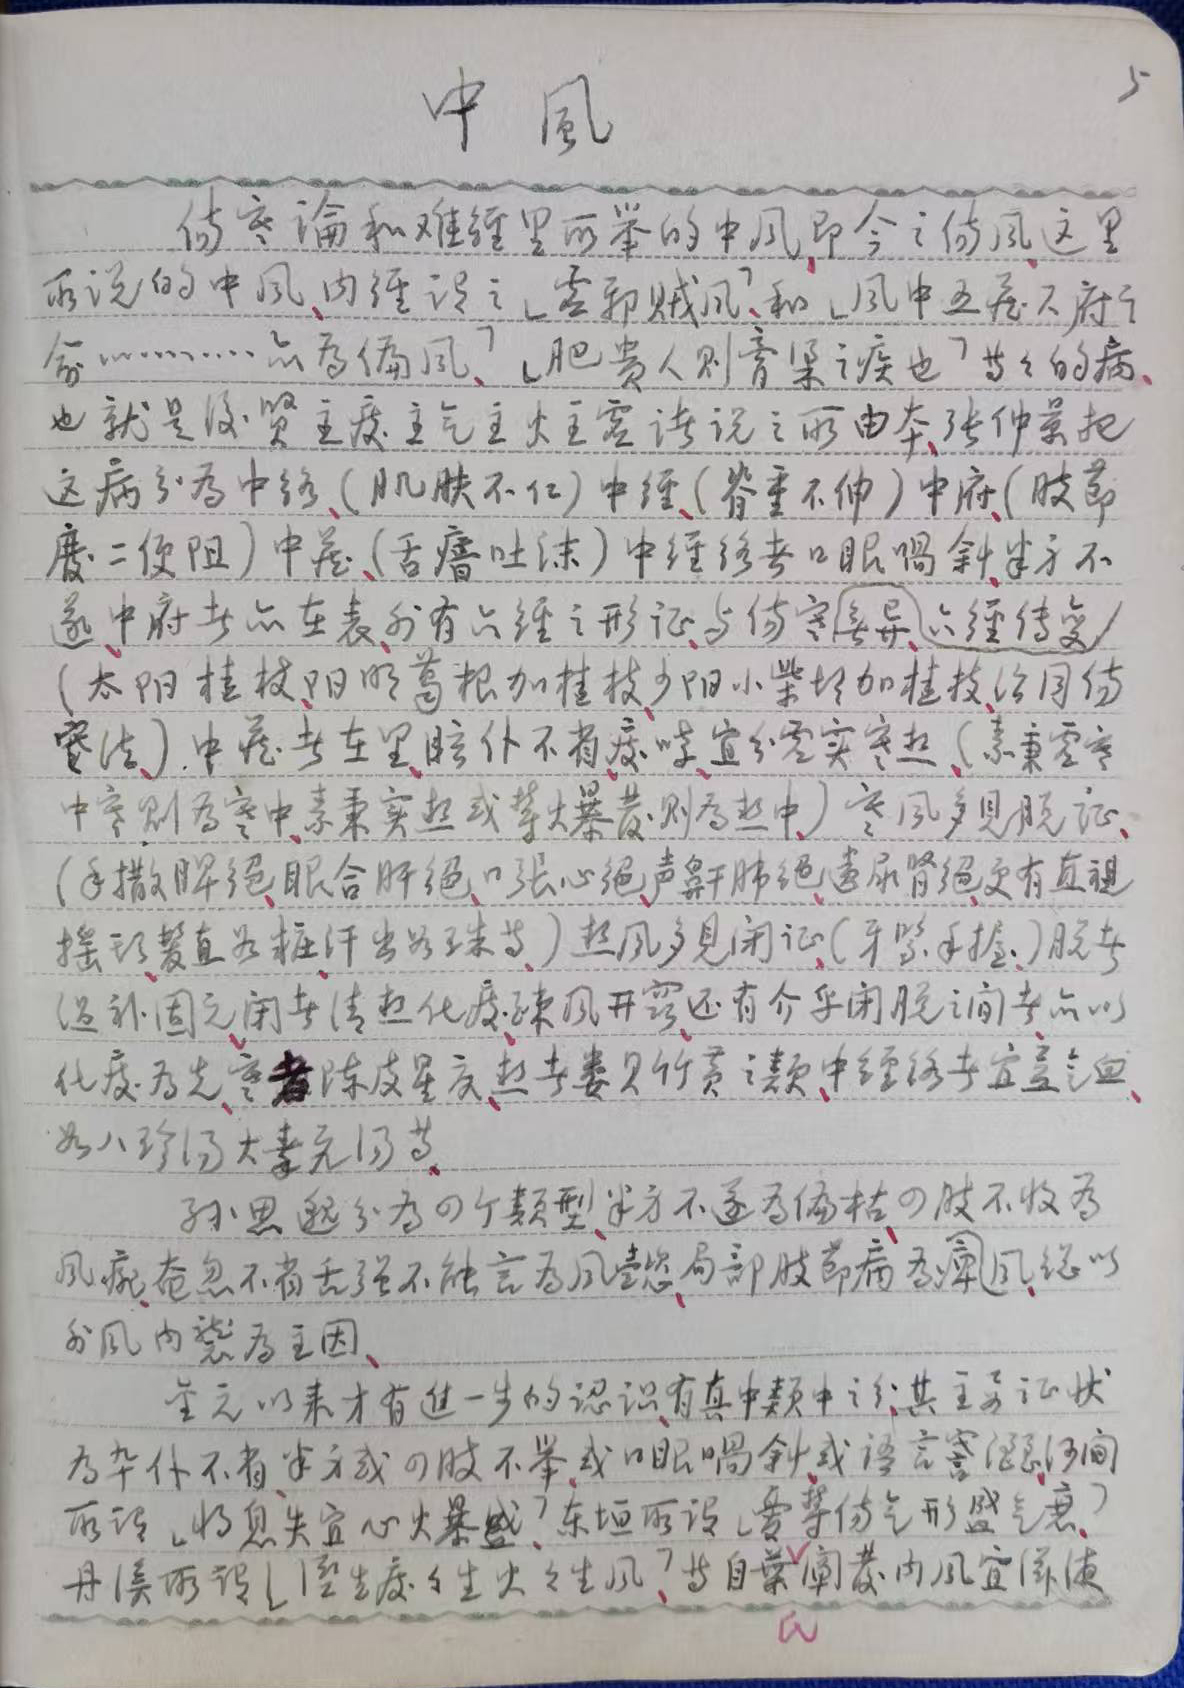 5
中風
伤寒論和难經里所举的中风、即今之伤风、这里
所说的中风、内經谓之「虚邪贼风」、和「风中五藏六府之
俞…………亦為偏风」、「肥贵人则膏梁之疾也」等々的病、
也就是後賢主痰主气主火主虚诸说之所由本、张仲景把
这病分為中络、(肌肤不仁)中經、(脊重不伸)中府、(肢節
廢二便阻)中藏、(舌瘖吐沫)中經络者口眼喎斜、半身不
遂、中府者亦在表、外有六經之形证、与伤寒六經传变異
(太阳桂枝、阳明葛根加桂枝、少阳小柴胡加桂枝、治同伤
寒法、)中藏者在里、眩仆不省、痰哮、宜分虚实寒热、(素秉虚寒
中寒则為寒中、素秉实热或荣火暴發、则為热中、)寒风多見脱证、
(手撒脾绝、眼合肝绝、口张心绝、声鼾肺绝、遗尿腎绝、更有直視
摇頭、髮直如粧、汗出如珠等、)热风多見闭证、(牙紧手握、)脱者
温补固元、闭者清热化痰、疎风开窍、还有介乎闭脱之间者、亦以
化痰為先、寒者陈皮星夏、热者蒌贝竹黄之類、中經络者宜益气血、
如八珍汤大秦艽汤等、
孙思邈分為四个類型、半身不遂為偏枯、四肢不收為
风痱、奄忽不省舌强不能言為风懿、局部肢節病為痹风、综以
外风内襲為主因、
金元以来才有進一步的認识、有真中類中之分、其主要证状
為卒仆不省、半身或四肢不举、或口眼喎斜、或语言謇涩、河间
所谓「将息失宜心火暴盛」、东垣所谓「憂Angry伤气形盛气衰」、
丹溪所谓「湿生痰々生火々生风」、等自葉氏阐發内风宜滋液